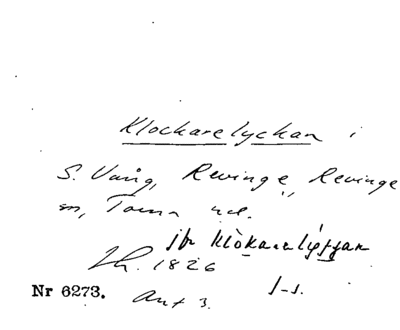 Klockarelyckan i
S. Vång, Revinge, Revinge
sn, Torna hd.
jfr Klòkarelýkkan
Lh. 1826
Nr 6273. Ant 3.